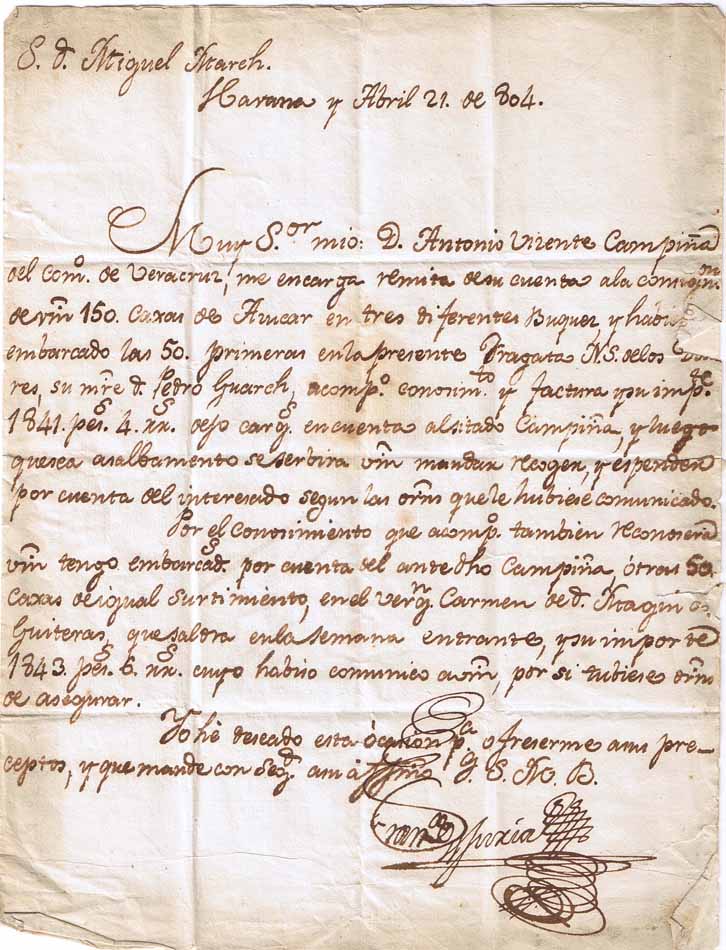 S. d. Miguel March.
Havana y Abril 21. de 804.
Muy S.or mio: D. Antonio Vizente Campiña
del Com.o de Veracruz, me encarga remita de su cuenta a la consign.on
de vm̃ 150. Caxas de Azucar en tres diferentes Buques, y habi
embarcado las 50. primeras en la presente Fragata N.S. de los
res, su mr̃e d. Pedro Guarch, acomp.o conosim.to y factura y su imp.te
1841. pes.s 4. rr.s de so carg.s en cuenta al sitado Campiña, y luego
que sea a salbamento se serbira vm̃ mandar recoger, y espender
por cuenta del interesado segun las ordñs que le hubiese comunicado.
Por el conosimiento que acomp.o tambien reconosera
vm̃ tengo embarcad.s por cuenta del antedho Campiña, ótras 50
caxas de igual surtimiento, en el Verg.n Carmen de d. Maquin
Guiteras, que saldra en la semana entrante, y su importe
1843. pes.s 6. rr.s cuyo habiso comunico a vm̃, por si tubiese ordñs
de asegurar.
Yo hé deseado esta òcasion p.a ofreserme a sus pre-
ceptos, y que mande con seg.d a su affmo q. S. M. B.
Fran.co